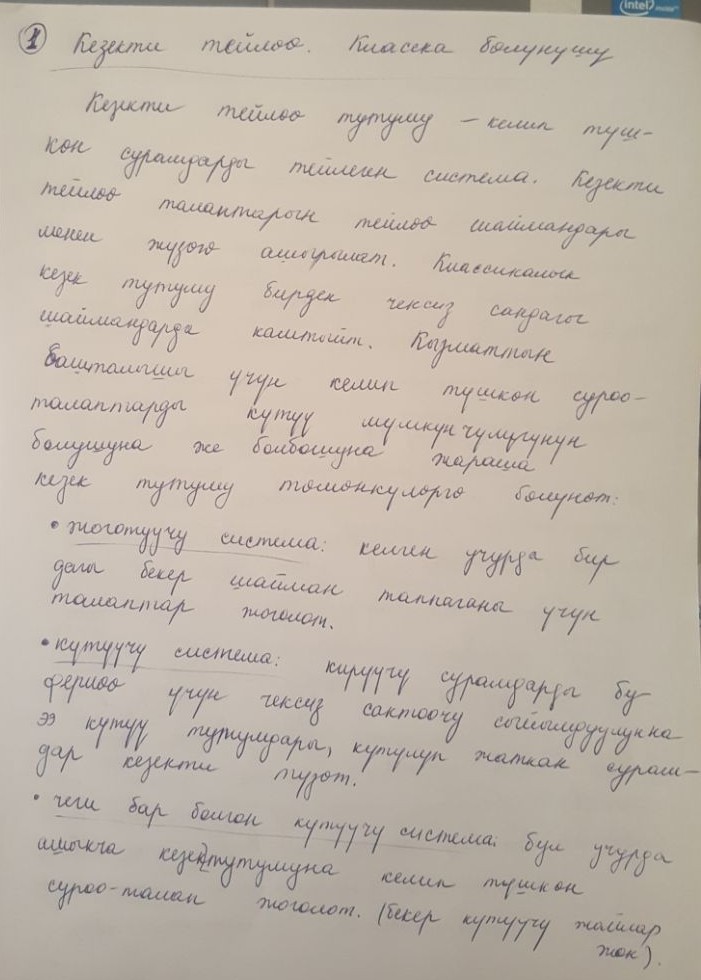 1 Кезекти тейлоо. Класска болунушу
Кезекти тейлоо тутуму – келип туш-
кон сурамдарды тейлеген система. Кезекти
тейлоо талаптарын тейлоо шаймандары
менен жузого ашырылат. Классикалык
кезек тутуму бирден чексиз сандагы
шаймандарда камтыйт. Кызматтын
башталышы учун келип тушкон суроо-
талаптарды кутуу мумкунчулугунун
болушуна же болбошуна жараша
кезек тутуму томонкулорго болунот:
• жоготуучу система: келген учурда бир
дагы бекер шайман таппаганы учун
талаптар жоголот.
• кутуучу система: кируучу сурамдарды бу-
ферлоо учун чексиз сактоочу сыйымдуулукка
ээ кутуу тутумдары, кутулуп жаткан сурам-
дар кезекти тузот.
• чеги бар болгон кутуучу система: бул учурда
ашыкча кезек тутумуна келип тушкон
суроо-талап жоголот. (бекер кутуучу жайлар
жок).
intel